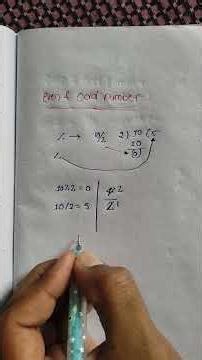 Even & Odd number
% → 10/2 2) 10 (5
10
0
/
10%2=0
10/2=5